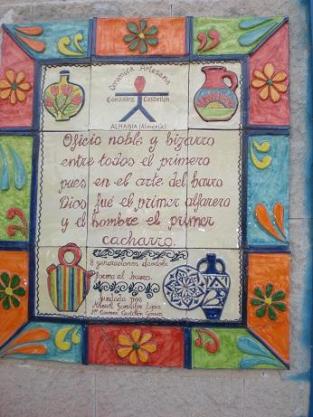 Ceramica Artesana
González Castellón
ALHABIA (Almería)
Oficio noble y bizarro
entre todos el primero
pues en el arte del barro
Dios fué el primer alfarero
y el hombre el primer
cacharro.
8 generaciones dándole
forma al barro.
fundada por
Manuel González López
Mª Carmen Castellón